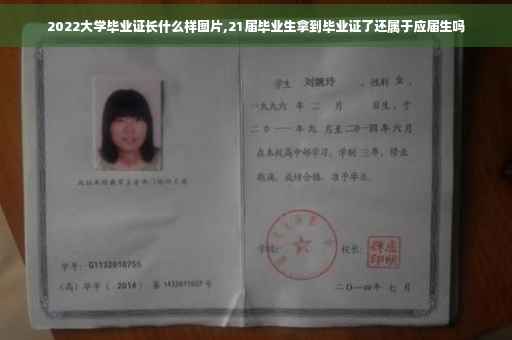 2022大学毕业证长什么样图片,21届毕业生拿到毕业证了还属于应届生吗
学生 刘婉玲 ,性别 女 ,
一九九六 年 二 月 日生,于
二〇一一 年 九 月至 二〇一四 年 六 月
在本校高中部学习,学制 三 年,修业
期满,成绩合格,准予毕业。
学号: G1132010755
(高)毕字( 2014 )第 1432011027 号
学校:
校长:
二〇一四年 七 月